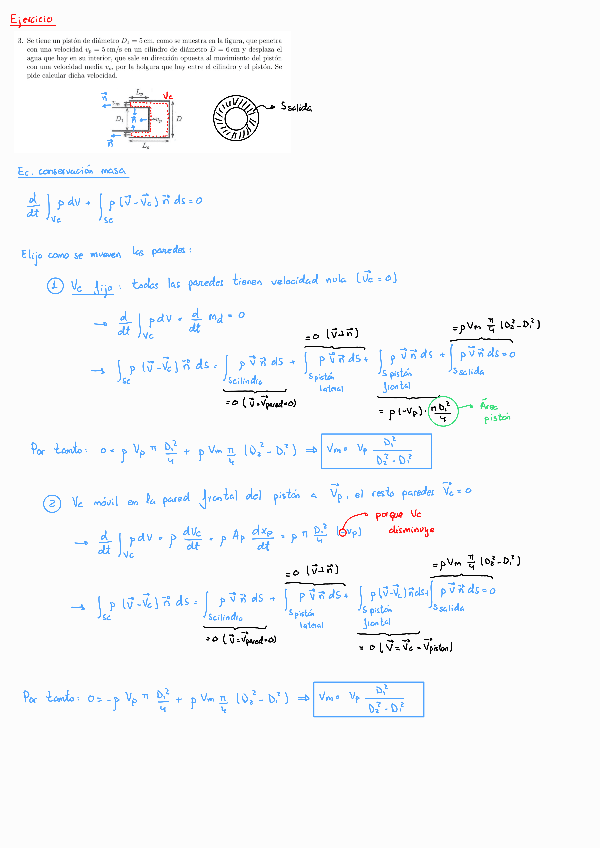 Ejercicio
3. Se tiene un pistón de diámetro D₁ = 5 cm, como se muestra en la figura, que penetra
con una velocidad vₚ = 5 cm/s en un cilindro de diámetro D = 6 cm y desplaza el
agua que hay en su interior, que sale en dirección opuesta al movimiento del pistón
con una velocidad media vₛ, por la holgura que hay entre el cilindro y el pistón. Se
pide calcular dicha velocidad.
Vc
n⃗
D₁
n⃗
D
n⃗
Ssalida
Ec. conservación masa
d/dt ∫Vc ρ dV + ∫Sc ρ (V⃗ - V⃗c) n⃗ ds = 0
Elijo como se mueven las paredes:
① Vc fijo: todas las paredes tienen velocidad nula (V⃗c = 0)
→ d/dt ∫Vc ρ dV = d/dt md = 0
= 0 (V⃗ ⊥ n⃗)
= ρ Vm π/4 (D₂² - D₁²)
→ ∫Sc ρ (V⃗ - V⃗c) n⃗ ds = ∫Scilindro ρ V⃗ n⃗ ds + ∫Spistón lateral ρ V⃗ n⃗ ds + ∫Spistón frontal ρ V⃗ n⃗ ds + ∫Ssalida ρ V⃗ n⃗ ds = 0
= 0 (V⃗ = V⃗pared = 0)
= ρ (-Vp) · πD₁²/4 → Área pistón
Por tanto: 0 = ρ Vp π D₁²/4 + ρ Vm π/4 (D₂² - D₁²) ⇒ Vm = Vp D₁²/(D₂² - D₁²)
② Vc móvil en la pared frontal del pistón a V⃗p, el resto paredes V⃗c = 0
porque Vc
disminuye
→ d/dt ∫Vc ρ dV = ρ dVc/dt = ρ Ap dxp/dt = ρ π D₁²/4 (-Vp)
= 0 (V⃗ ⊥ n⃗)
= ρ Vm π/4 (D₂² - D₁²)
→ ∫Sc ρ (V⃗ - V⃗c) n⃗ ds = ∫Scilindro ρ V⃗ n⃗ ds + ∫Spistón lateral ρ V⃗ n⃗ ds + ∫Spistón frontal ρ (V⃗ - V⃗c) n⃗ ds + ∫Ssalida ρ V⃗ n⃗ ds = 0
= 0 (V⃗ = V⃗pared = 0)
= 0 (V⃗ = V⃗c = V⃗pistón)
Por tanto: 0 = -ρ Vp π D₁²/4 + ρ Vm π/4 (D₂² - D₁²) ⇒ Vm = Vp D₁²/(D₂² - D₁²)